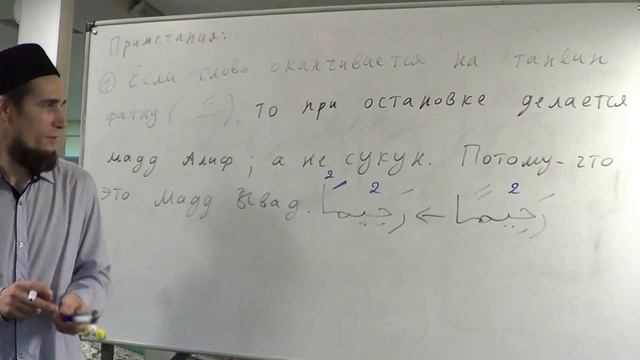 Примечания:
① Если слово оканчивается на танвин
фатху ( ــً ), то при остановке делается
мадд Алиф; а не сукун. Потому-что
это Мадд Ъвад. رَحِيمَا ← رَحِيمًا
2 2 2